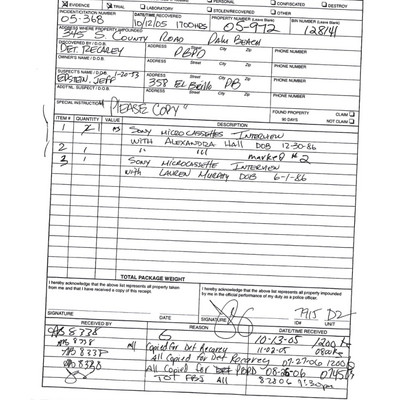 EVIDENCE TRIAL LABORATORY PERSONAL STOLEN/RECOVERED CONFISCATED OTHER DESTROY
INCIDENT/CITATION NUMBER DATE/TIME RECOVERED PROPERTY NUMBER (Leave Blank) BIN NUMBER (Leave Blank)
05-368 10/12/05 1700HRS 05-972 12814
ADDRESS WHERE PROPERTY IMPOUNDED
345 S. COUNTY ROAD PALM BEACH
DISCOVERED BY / D.O.B. ADDRESS Street City Zip PHONE NUMBER
DET. RECAREY PBPD
OWNER'S NAME / D.O.B. ADDRESS Street City Zip PHONE NUMBER
SUSPECT'S NAME / D.O.B. 1-20-53 ADDRESS Street City Zip PHONE NUMBER
EPSTEIN, JEFF 358 El Brillo PB
ADDT'NL SUSPECT / D.O.B. ADDRESS Street City Zip PHONE NUMBER
SPECIAL INSTRUCTION "PLEASE COPY" FOUND PROPERTY CLAIM
90 DAYS NOT CLAIM
ITEM # QUANTITY VALUE DESCRIPTION
1 SONY MICROCASSETTES INTERVIEW
WITH ALEXANDRA HALL DOB 12-30-86
2 1 " " marked # 2
3 1 SONY MICROCASSETTE INTERVIEW
with LAUREN MURPHY DOB 6-1-86
TOTAL PACKAGE WEIGHT
I hereby acknowledge that the above list represents all property taken
from me and that I have received a copy of this receipt.
I hereby acknowledge that the above list represents all property impounded
by me in the official performance of my duty as a police officer.
SIGNATURE DATE SIGNATURE ID# UNIT
RECEIVED BY REASON DATE/TIME RECEIVED
8338 10-13-05 1200
8338 All Copied for Det Recarey 11-02-05 0800
8338 All Copied for Det Recarey 07-27-06 1200
8338 All Copied for Det PBPD 08-25-06 0745
TOT FBI